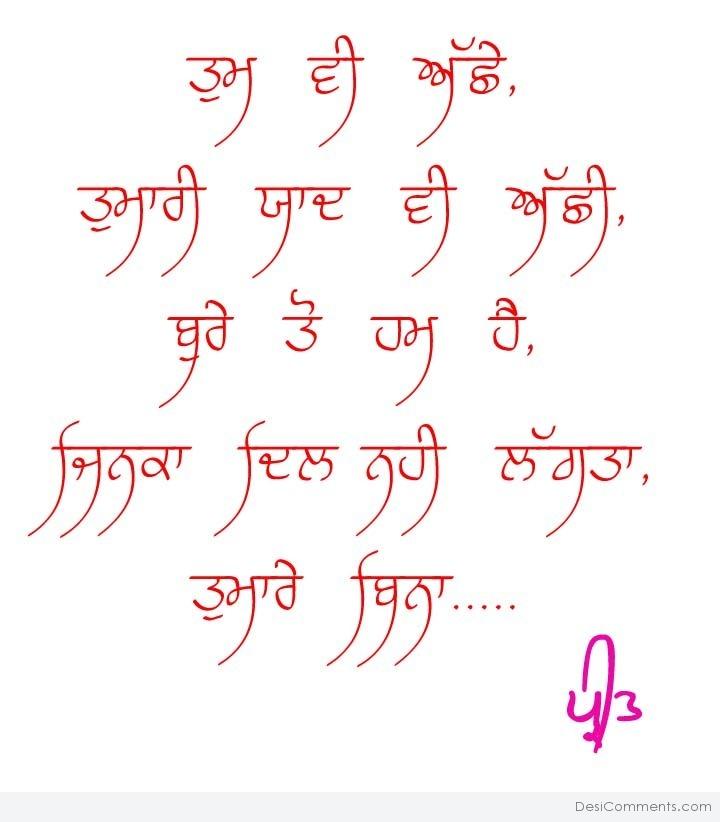 ਤੁਮ ਵੀ ਅੱਛੇ,
ਤੁਮਾਰੀ ਯਾਦ ਵੀ ਅੱਛੀ,
ਬੁਰੇ ਤੋ ਹਮ ਹੈ,
ਜਿਨਕਾ ਦਿਲ ਨਹੀ ਲੱਗਤਾ,
ਤੁਮਾਰੇ ਬਿਨਾ.....
ਪ੍ਰੀਤ
DesiComments.com